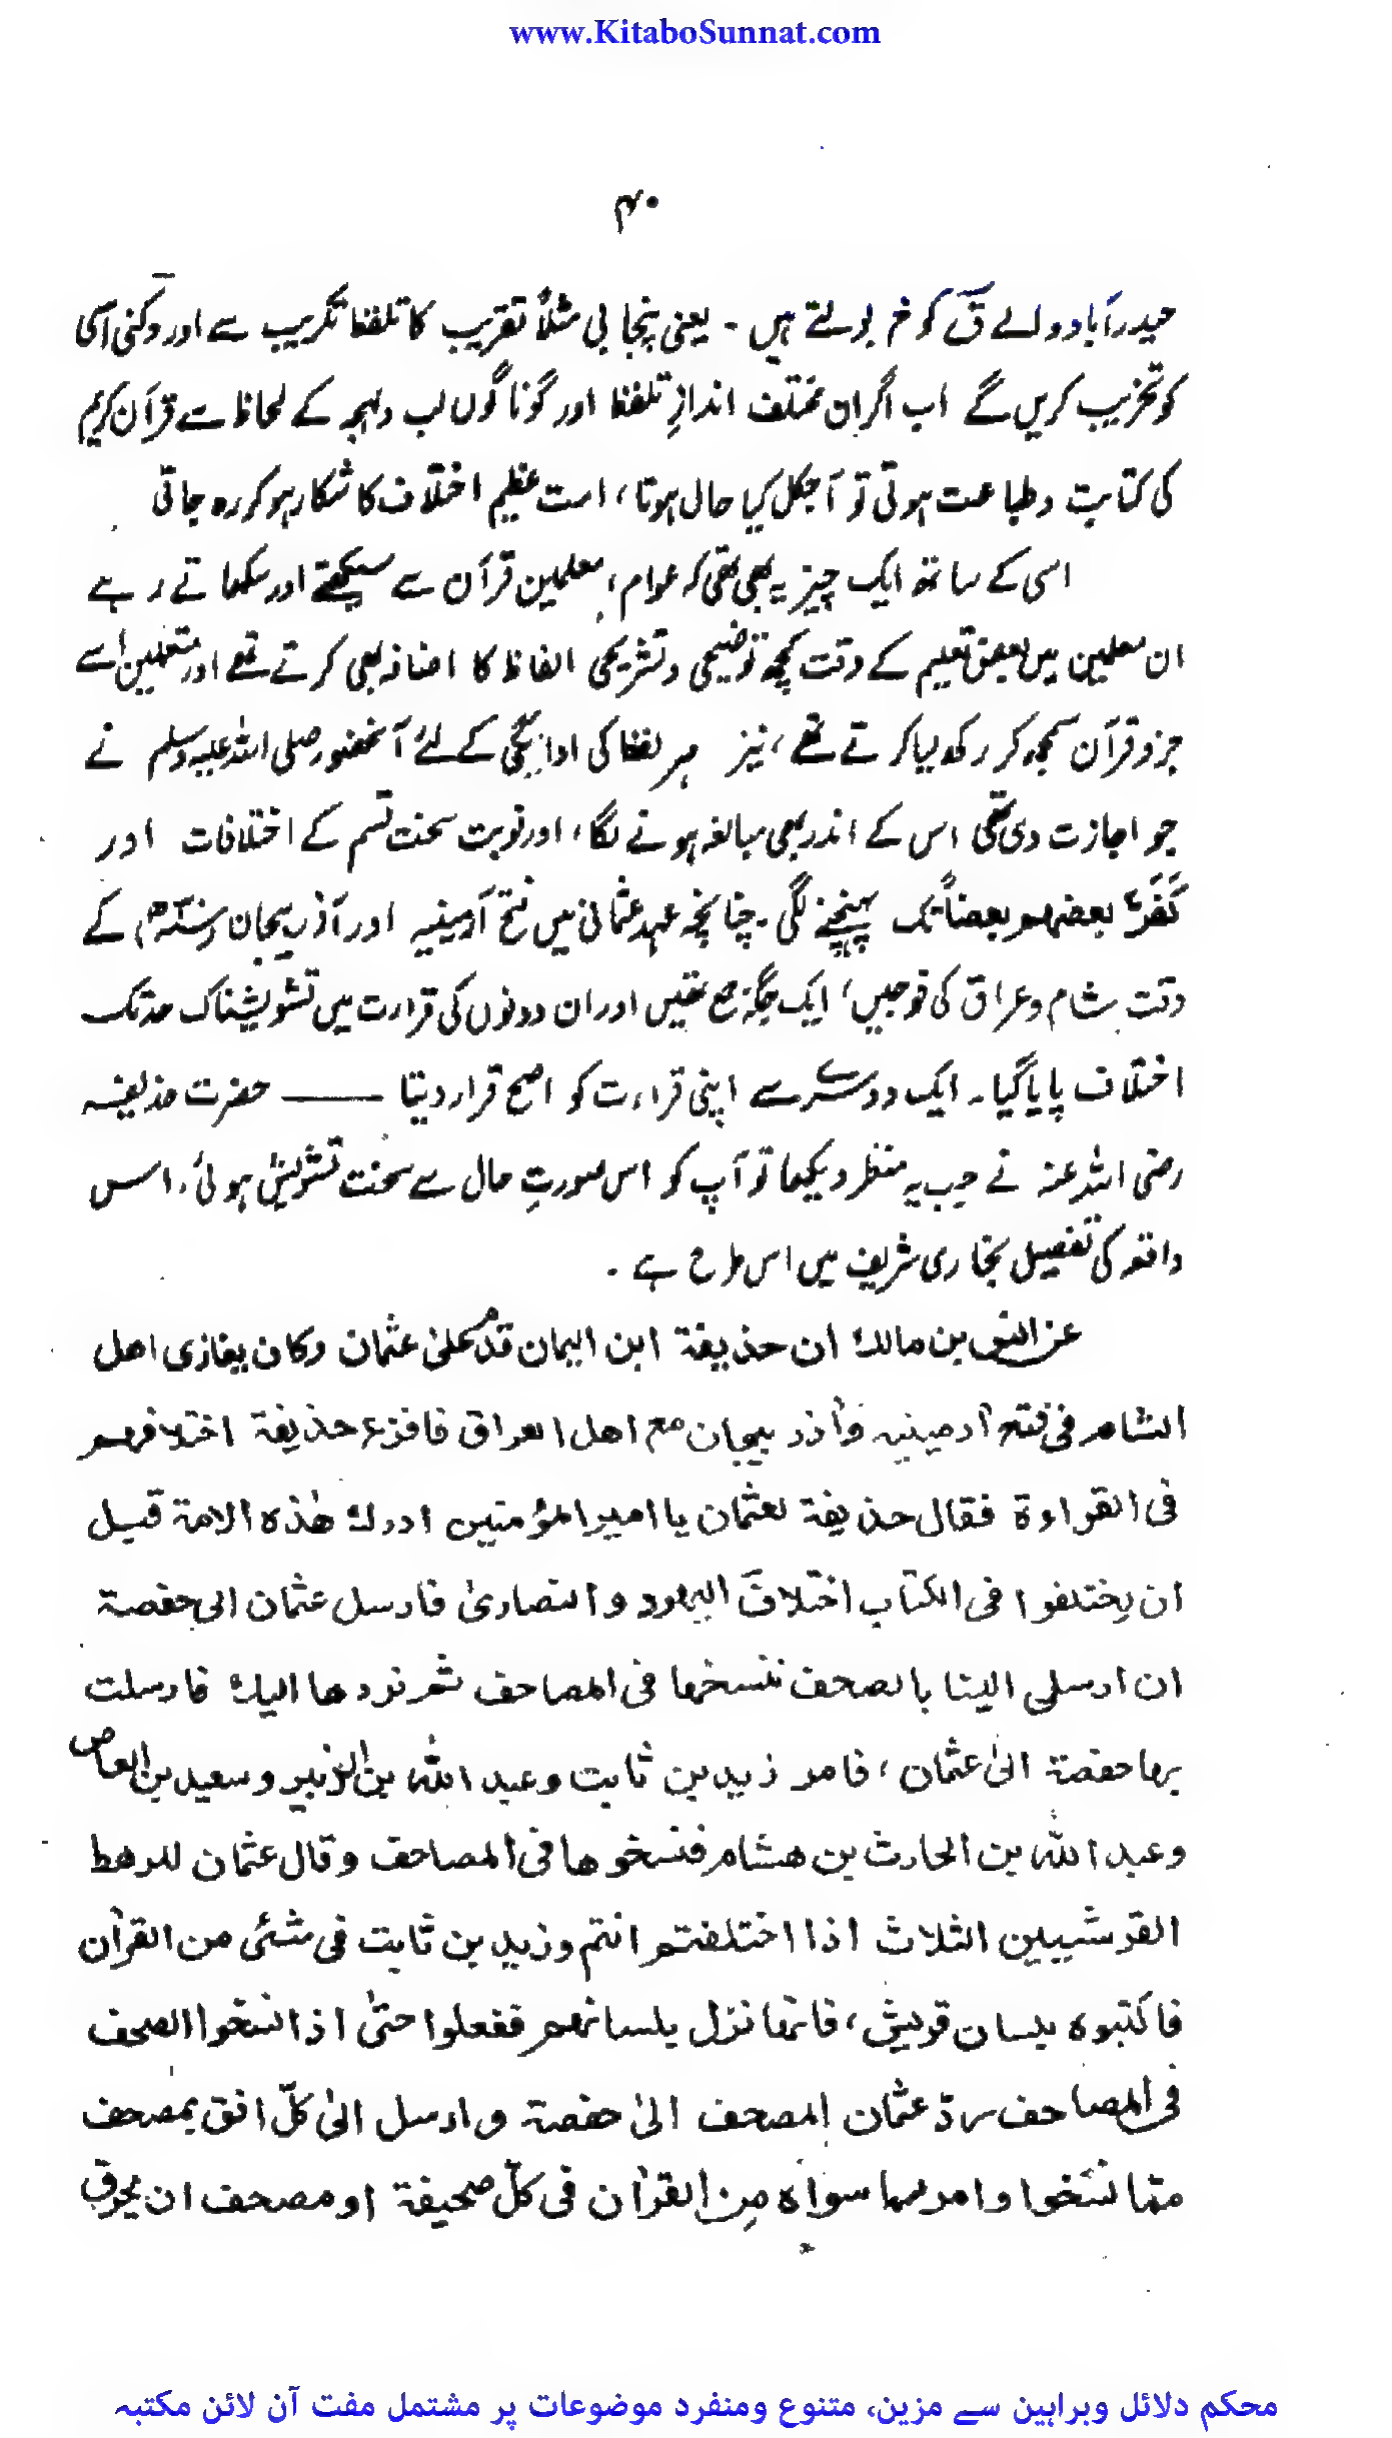 www.KitaboSunnat.com
۴۰
حیدرآباد والے قؔ کو خر بولتے ہیں ۔ یعنی پنجابی مثلاً تقریب کا تلفظ تکریب سے اور دکنی اسی
کو تخریب کریں گے اب اگر ان مختلف اندازِ تلفظ اور گونا گوں لب ولہجہ کے لحاظ سے قرآن کریم
کی کتابت وطباعت ہوتی تو آجکل کیا حال ہوتا، امت عظیم اختلاف کا شکار ہو کر رہ جاتی
اسی کے ساتھ ایک چیز یہ بھی تھی کہ عوام، معلمین قرآن سے سیکھتے اور سکھاتے رہے
ان معلمین میں بعض تعلیم کے وقت کچھ توضیحی وتشریحی الفاظ کا اضافہ بھی کرتے تھے اور متعلمین اسے
جزو قرآن سمجھ کر رکھ لیا کرتے تھے، نیز ہر لفظ کی ادائیگی کے لئے آنحضور صلی اللہ علیہ وسلم نے
جو اجازت دی تھی اس کے اندر بھی مبالغہ ہونے لگا، اور نوبت سخت قسم کے اختلافات اور
كَفَّرَ بعضهم بعضاً تک پہنچنے لگی ۔ چنانچہ عہد عثمانی میں فتح آرمینیہ اور آذر بیجان کے
وقت شام وعراق کی فوجیں، ایک جگہ جمع تھیں اور ان دونوں کی قرارت میں تشویشناک حد تک
اختلاف پایا گیا ۔ ایک دوسرے سے اپنی قراءت کو اصح قرار دیتا ــــــــ حضرت حذیفہ
رضی اللہ عنہ نے جب یہ منظر دیکھا تو آپ کو اس صورتِ حال سے سخت تشویش ہوئی، اس
واقعہ کی تفصیل بخاری شریف میں اس طرح ہے ۔
عن انس بن مالك ان حذيفة ابن اليمان قدم على عثمان وكان يغازى اهل
الشام فى فتح آرمينيه وآذر بيجان مع اهل العراق فافزع حذيفة اختلافهم
فى القراءة فقال حذيفة لعثمان يا امير المؤمنين ادرك هٰذه الامة قبل
ان يختلفوا فى الكتاب اختلافَ اليهود والنصارىٰ فارسل عثمان الى حفصة
ان ارسلى الينا بالصحف ننسخها فى المصاحف ثم نردها اليك فارسلت
بها حفصة الىٰ عثمان، فامر زيد بن ثابت وعبد الله بن الزبير وسعيد بن العاص
وعبد الله بن الحارث بن هشام فنسخوها فى المصاحف وقال عثمان للرهط
القرشيين الثلاث اذا اختلفتم انتم وزيد بن ثابت فى شئى من القرآن
فاكتبوه بلسان قريش، فانما نزل بلسانهم ففعلوا حتىٰ اذا نسخوا الصحف
فى المصاحف ردّ عثمان المصحف الىٰ حفصة وارسل الىٰ كلّ افق بمصحف
ممّا نسخوا وامر بما سواه من القرآن فى كلّ صحيفة او مصحف ان يحرق
محکم دلائل وبراہین سے مزین، متنوع ومنفرد موضوعات پر مشتمل مفت آن لائن مکتبہ